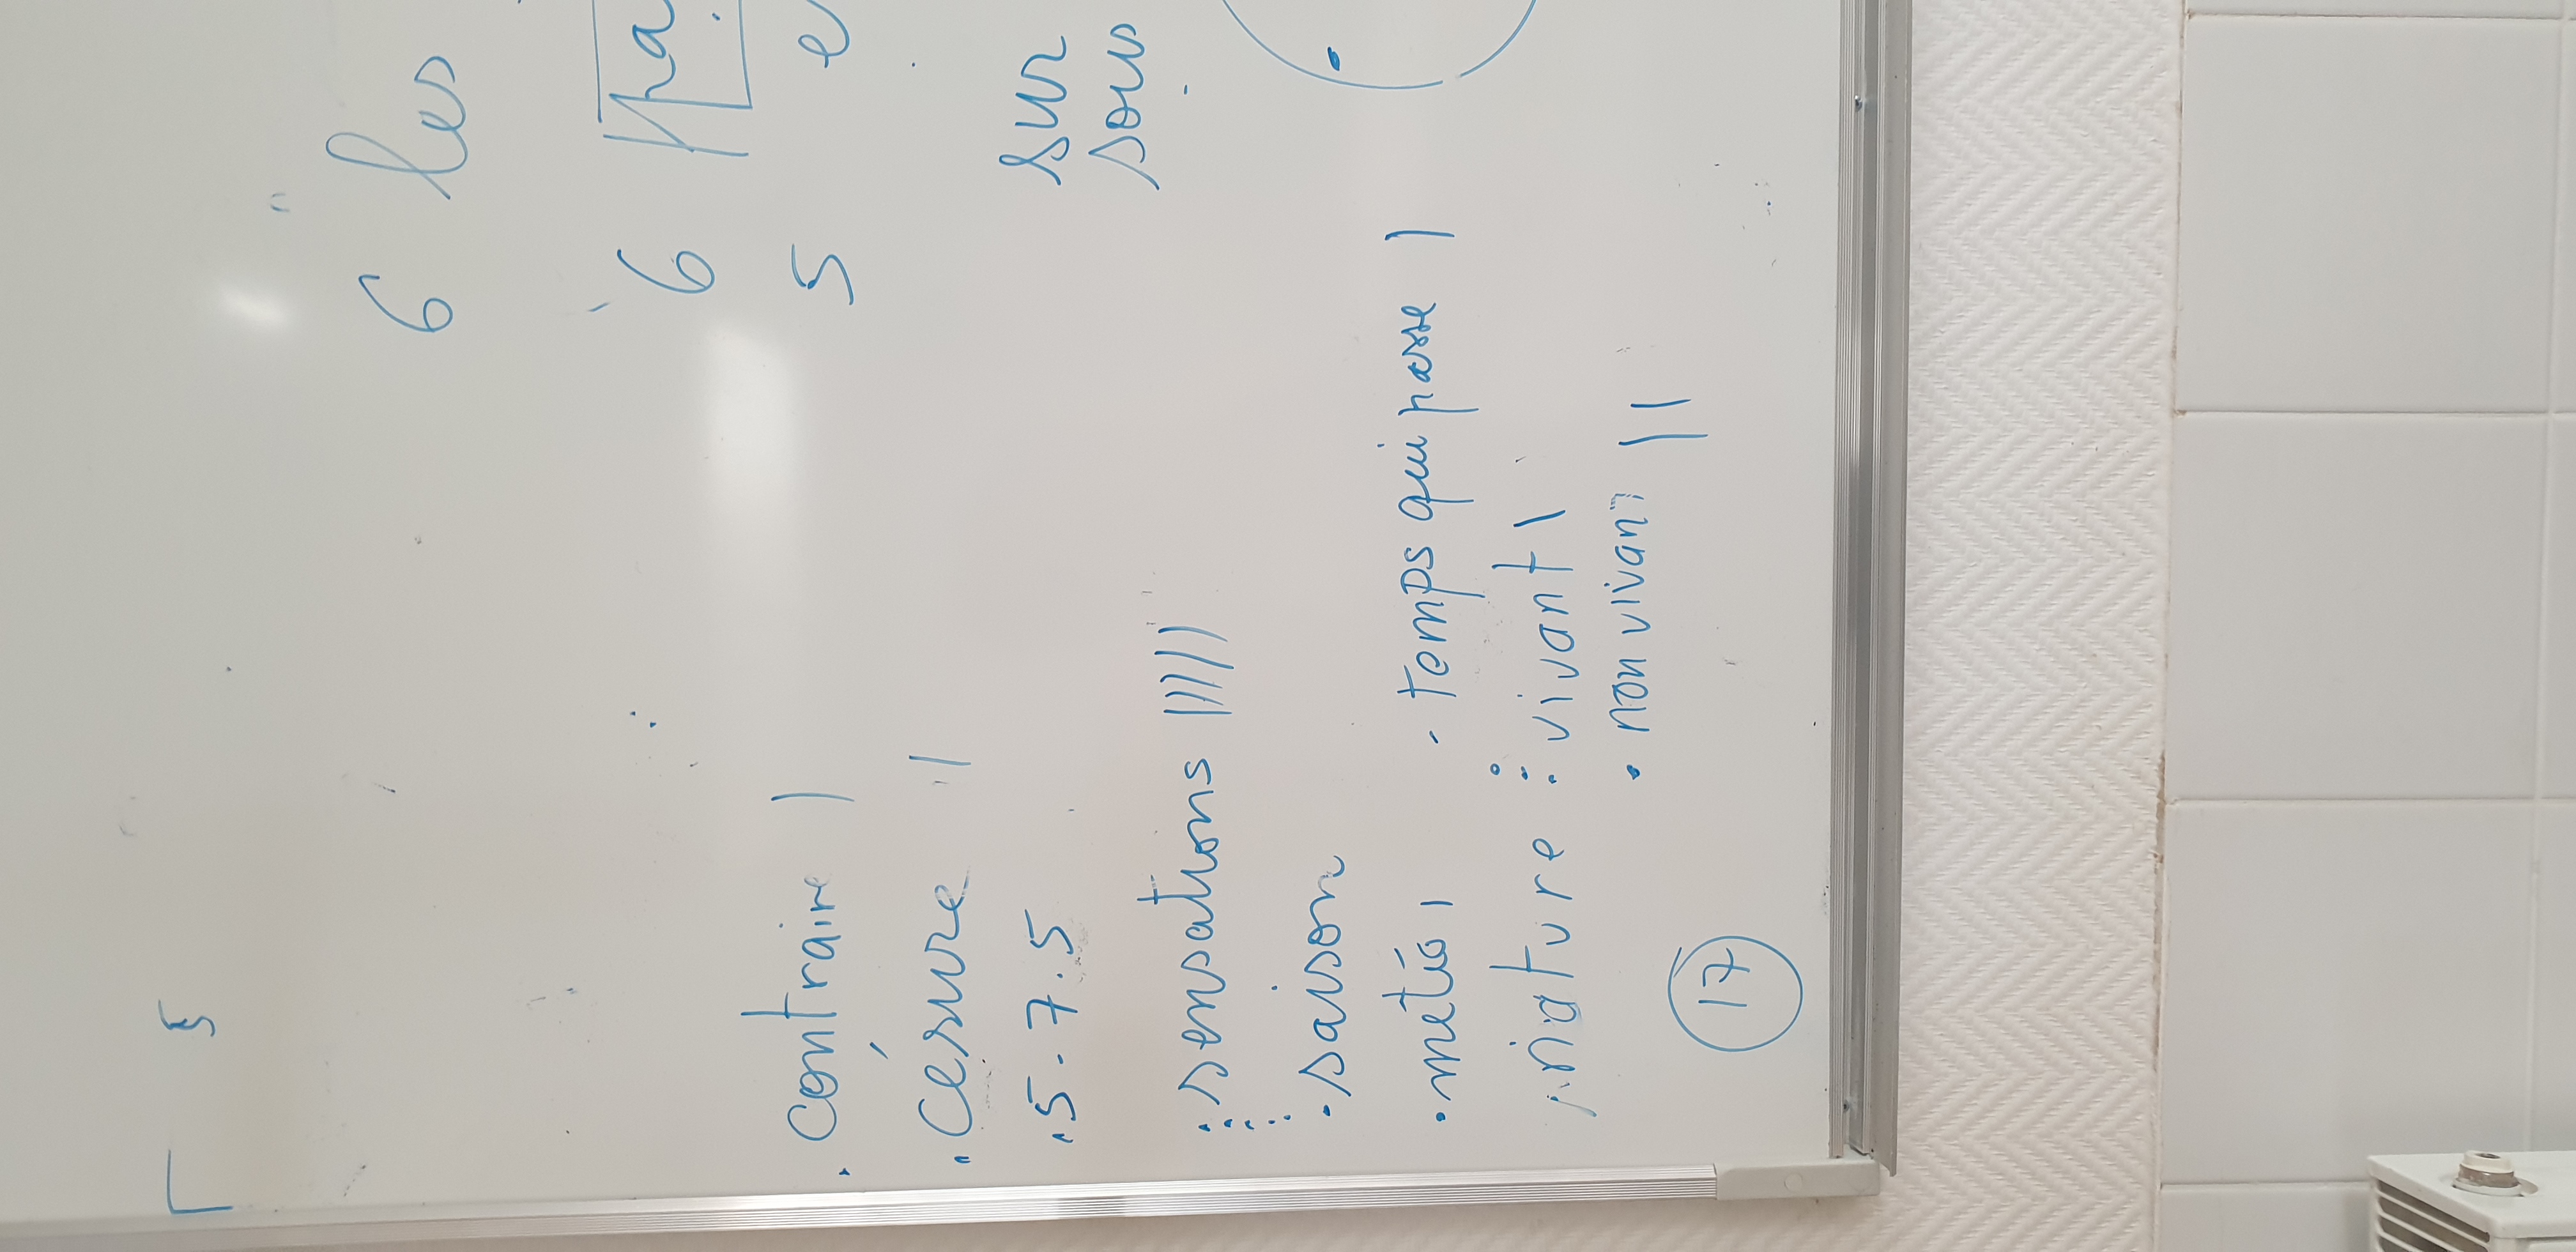 6 les
6
5 e
sur
sous
. contraire |
. césure ||
. 5.7.5
: sensations |||||
. saison
. météo | . temps qui passe |
. nature : . vivant |
. non vivant ||
17